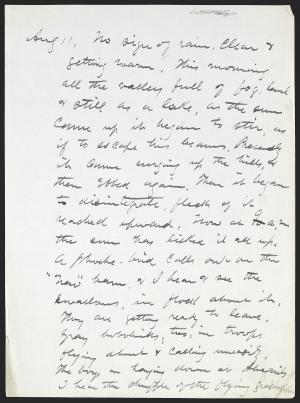 Aug 11, No sign of rain, Clear &
getting warm. This morning
all the valley full of fog, level
& still as a lake, as the sun
came up it began to stir, as
if to escape his beams. Presently
it came surging up the hills, &
then ebbed again. Then it began
to disintegrate, flecks of it
reached upward, Now at 9 a.m.
the sun has licked it all up.
A phoebe-bird calls out on the
"new" barn, & I hear & see the
swallows, in flock about it.
They are getting ready to leave.
Gray bobolinks, too, in troops
flying about & calling
The boys in haying down at
I hear the of the flying grasshoppers